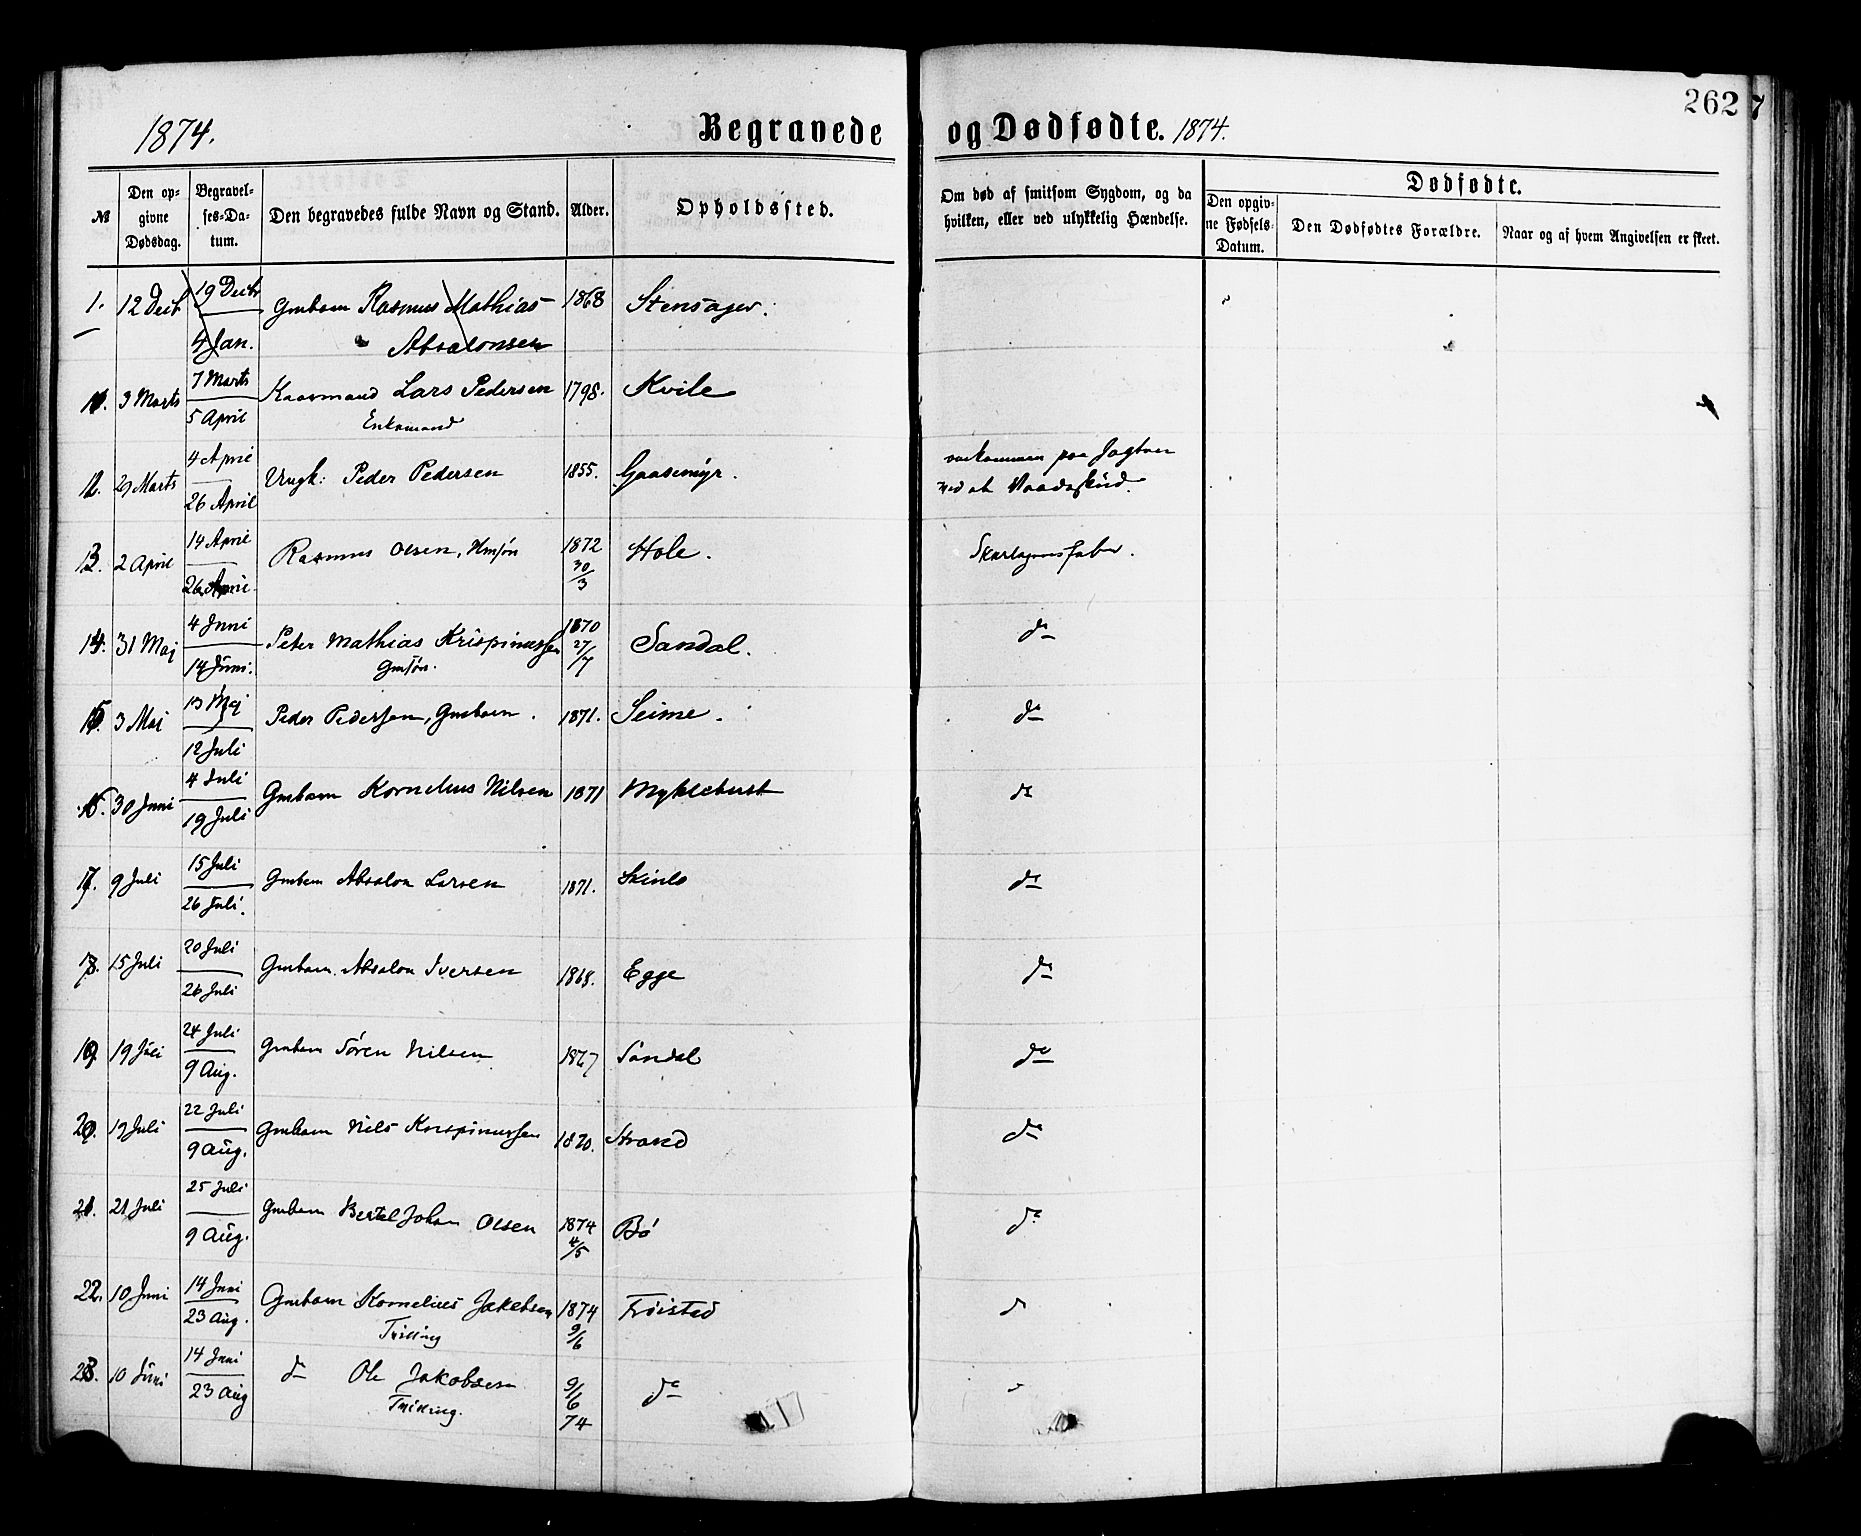 262
7
1874.
Begravede og Dødfødte. 1874.
№
Den op-
givne
Dødsdag.
Begravel-
ses-Da-
tum.
Den begravedes fulde Navn og Stand.
Alder.
Opholdssted.
Om død af smitsom Sygdom, og da
hvilken, eller ved ulykkelig Hændelse.
Dødfødte.
Den opgiv-
ne Fødsels-
Datum.
Den Dødfødtes Forældre.
Naar og af hvem Angivelsen er skeet.
1. 12 Decb 19 Decbr Gmbarn Rasmus Mathias 1868 Stensager.
4 Jan. Absalonsen
3 Marts 7 Marts Kaarmand Lars Pedersen 1798. Kvile
5 April Enkemand
12. 29 Marts 4 April Ungk: Peder Pedersen 1855. Gaasemyr. omkommen paa Jagten
26 April ved et Vaadeskud.
13. 2 April 14 April Rasmus Olsen, Hmsøn 1872 Hole. Skarlagensfeber.
26 April. 30/3
14. 31 Maj 4 Juni Peter Mathias Krispinussen 1870 Sandal. do
14 Juni. Gmsøn. 27/7
15. 3 Mai 13 Mai Peder Pedersen, Gmbarn. 1871. Seime. do
12 Juli
30 Juni 4 Juli Gmbarn Kornelius Nilsen 1871 Myklebust do
19 Juli
17. 9 Juli 15 Juli Gmbarn Absalon Larsen 1871. do
26 Juli.
18. 15 Juli 20 Juli Gmbarn. Absalon Iversen 1868. Egge do
26 Juli
19. 19 Juli 24 Juli Gmbarn Søren Nilsen 1867 Sandal do
9 Aug.
20. 19 Juli 22 Juli Gmbarn Nils Krispinussen 1870. Strand do
9 Aug.
21. 21 Juli 25 Juli Gmbarn Bertel Johan Olsen 1874 Bø do
9 Aug. 4/5
22. 10 Juni 14 Juni Gmbarn Kornelius Jakobsen 1874 Frøistad
23 Aug. Trilling 9/6
23. 10 Juni 14 Juni do Ole Jakobsen 9/6 do
23 Aug Trilling. 74